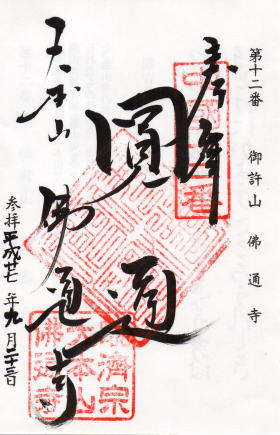 第十二番 御許山 佛通寺
奉拝
圓通
佛通寺
参拝平成廿七年九月二十三日
臨済宗
大本山
佛通寺